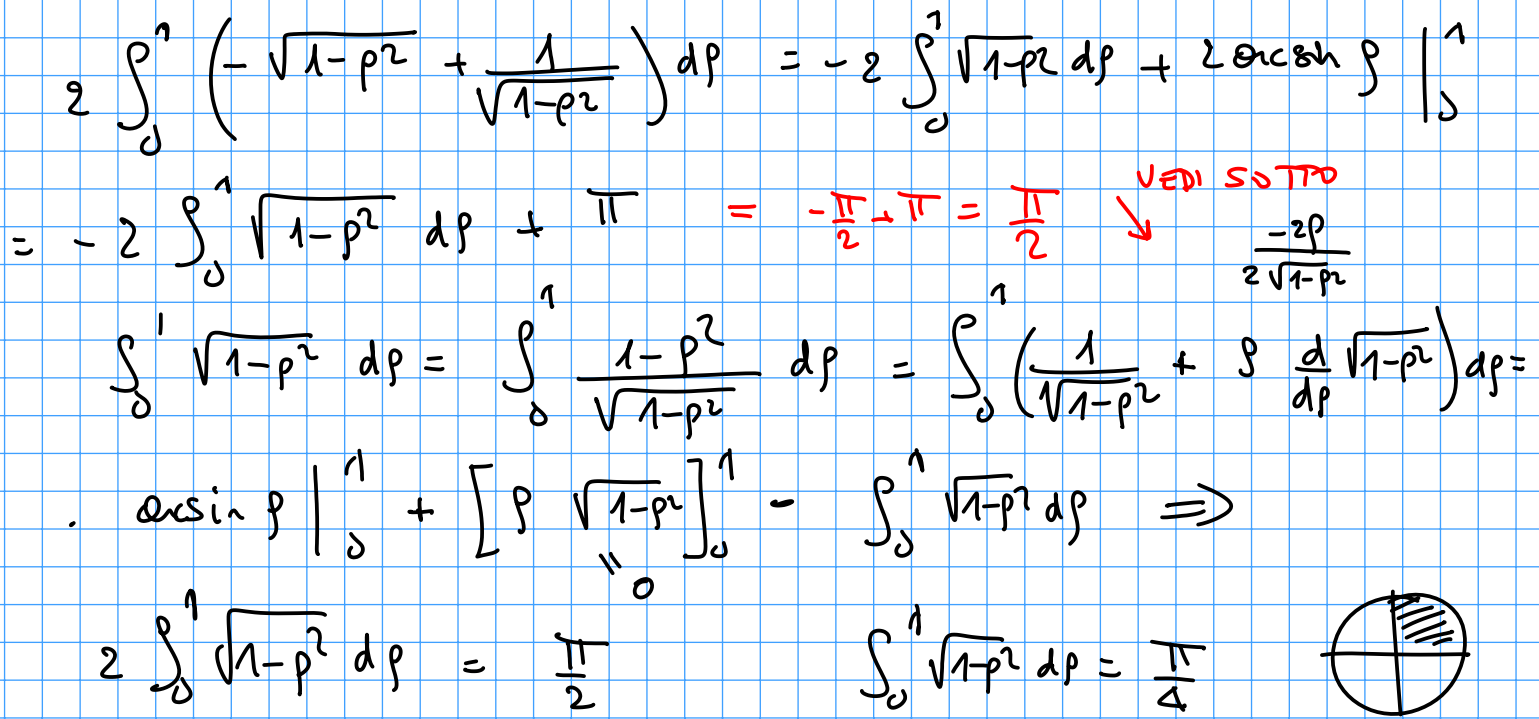 2 ∫₀¹ (- √(1-ρ²) + 1/√(1-ρ²)) dρ = - 2 ∫₀¹ √(1-ρ²) dρ + 2 arcsin ρ |₀¹
VEDI SOTTO
= - 2 ∫₀¹ √(1-ρ²) dρ + π = -π/2 + π = π/2 ↘ -2ρ/(2√(1-ρ²))
∫₀¹ √(1-ρ²) dρ = ∫₀¹ (1-ρ²)/√(1-ρ²) dρ = ∫₀¹ (1/√(1-ρ²) + ρ d/dρ √(1-ρ²)) dρ =
. arcsin ρ |₀¹ + [ρ √(1-ρ²)]₀¹ - ∫₀¹ √(1-ρ²) dρ ⇒
= 0
2 ∫₀¹ √(1-ρ²) dρ = π/2 ∫₀¹ √(1-ρ²) dρ = π/4